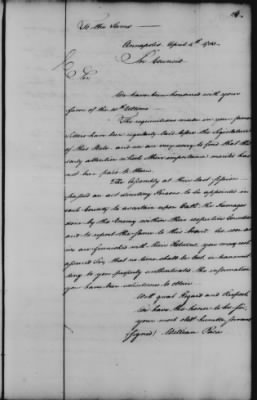 To the Same
Annapolis April 4th
In Council
Sir
We have been honored with your
favor of the
The requisitions made in your former
letters have been regularly laid before the Legislature
of this State, and we are very sorry to find that the
early attention which their importance merits has
not been paid to them.
The Assembly at their last Session
passed an act directing Persons to be appointed in
each County to ascertain upon Oath the Damages
done by the Enemy within their respective Counties
and to report the same to this Board. As soon as
we are furnished with their Returns, you may rest
assured Sir, that no time shall be lost in transmit
ting to you properly authenticated the information
you have been solicitous to obtain
With great Regard and Respect
we have the honor to be Sir,
your most obdt humble servants
(signed) William Paca